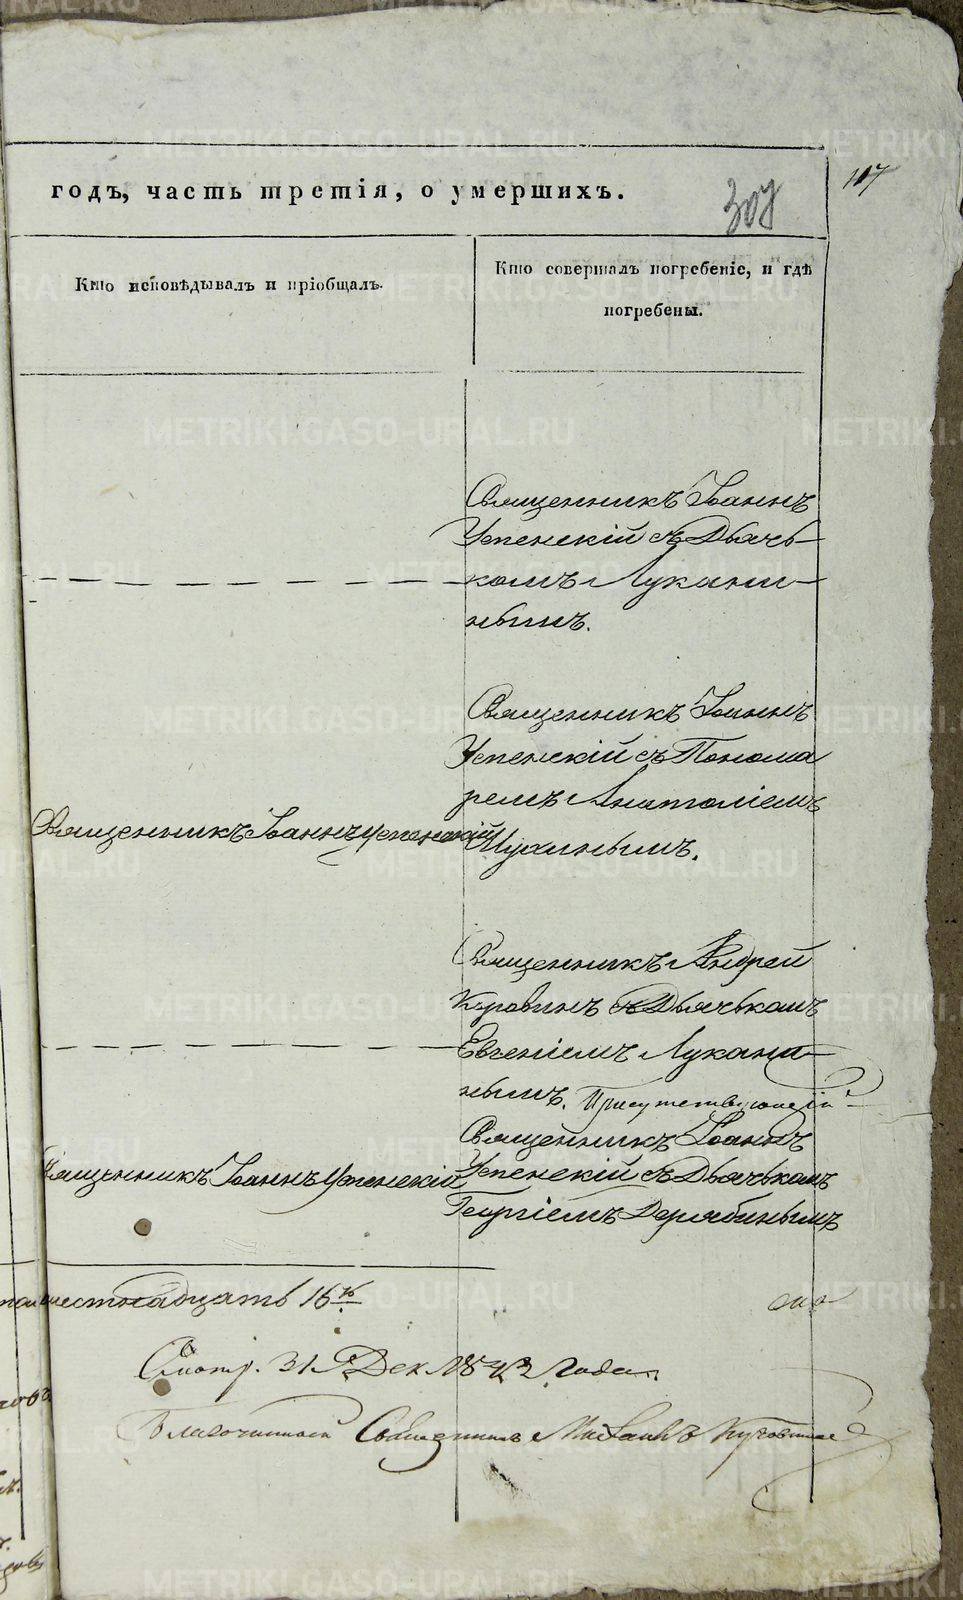 годъ, часть третія, о умершихъ.
307
107
Кто исповѣдывалъ и пріобщалъ.
Кто совершалъ погребеніе, и гдѣ
погребены.
Священникъ Іоаннъ
Успенскій съ Дьячь-
комъ Лукани-
нымъ.
Священникъ Іоаннъ
Успенскій съ Понома
ремъ Анатоліемъ
Священникъ Іоаннъ Успенскій
Священникъ Андрей
съ Дьячькомъ
Евгеніемъ Лукани-
нымъ. Присутствующій
Священникъ Іоаннъ
Священникъ Іоаннъ Успенскій
Успенскій съ Дьячькомъ
Георгіемъ Дерябинымъ
шестнадцать 16
Смотр. 31 Дек. 1843 Года.
Благочинный Священникъ Михаилъ
METRIKI.GASO-URAL.RU